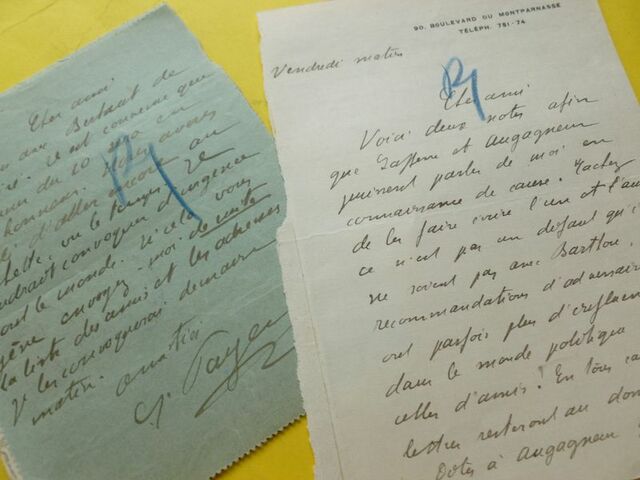 Cher ami
Dutait de
il est convenu que
du 20 sera en
honneur. Nous avons
d'aller encore au
ou le temps. Il
faudrait convoquer d'urgence
tout le monde. Si cela vous
gêne envoyez-moi de suite
la liste des amis et les adresses
je les convoquerai demain
matin. Amitiés
G. Payen
R
90, BOULEVARD DU MONTPARNASSE
TÉLÉPH. 781-74
Vendredi matin
R
Cher ami
Voici deux notes afin
que et Augagneur
puissent parler de moi en
connaissance de cause. Tachez
de les faire écrire l'un et l'au
ce n'est pas un défaut qu'i
ne soient pas avec Barthou.
recommandations d'adversair
ont parfois plus d'influen
dans le monde politique
celles d'amis! En tous ca
lettres resteront au do
à Augagneur